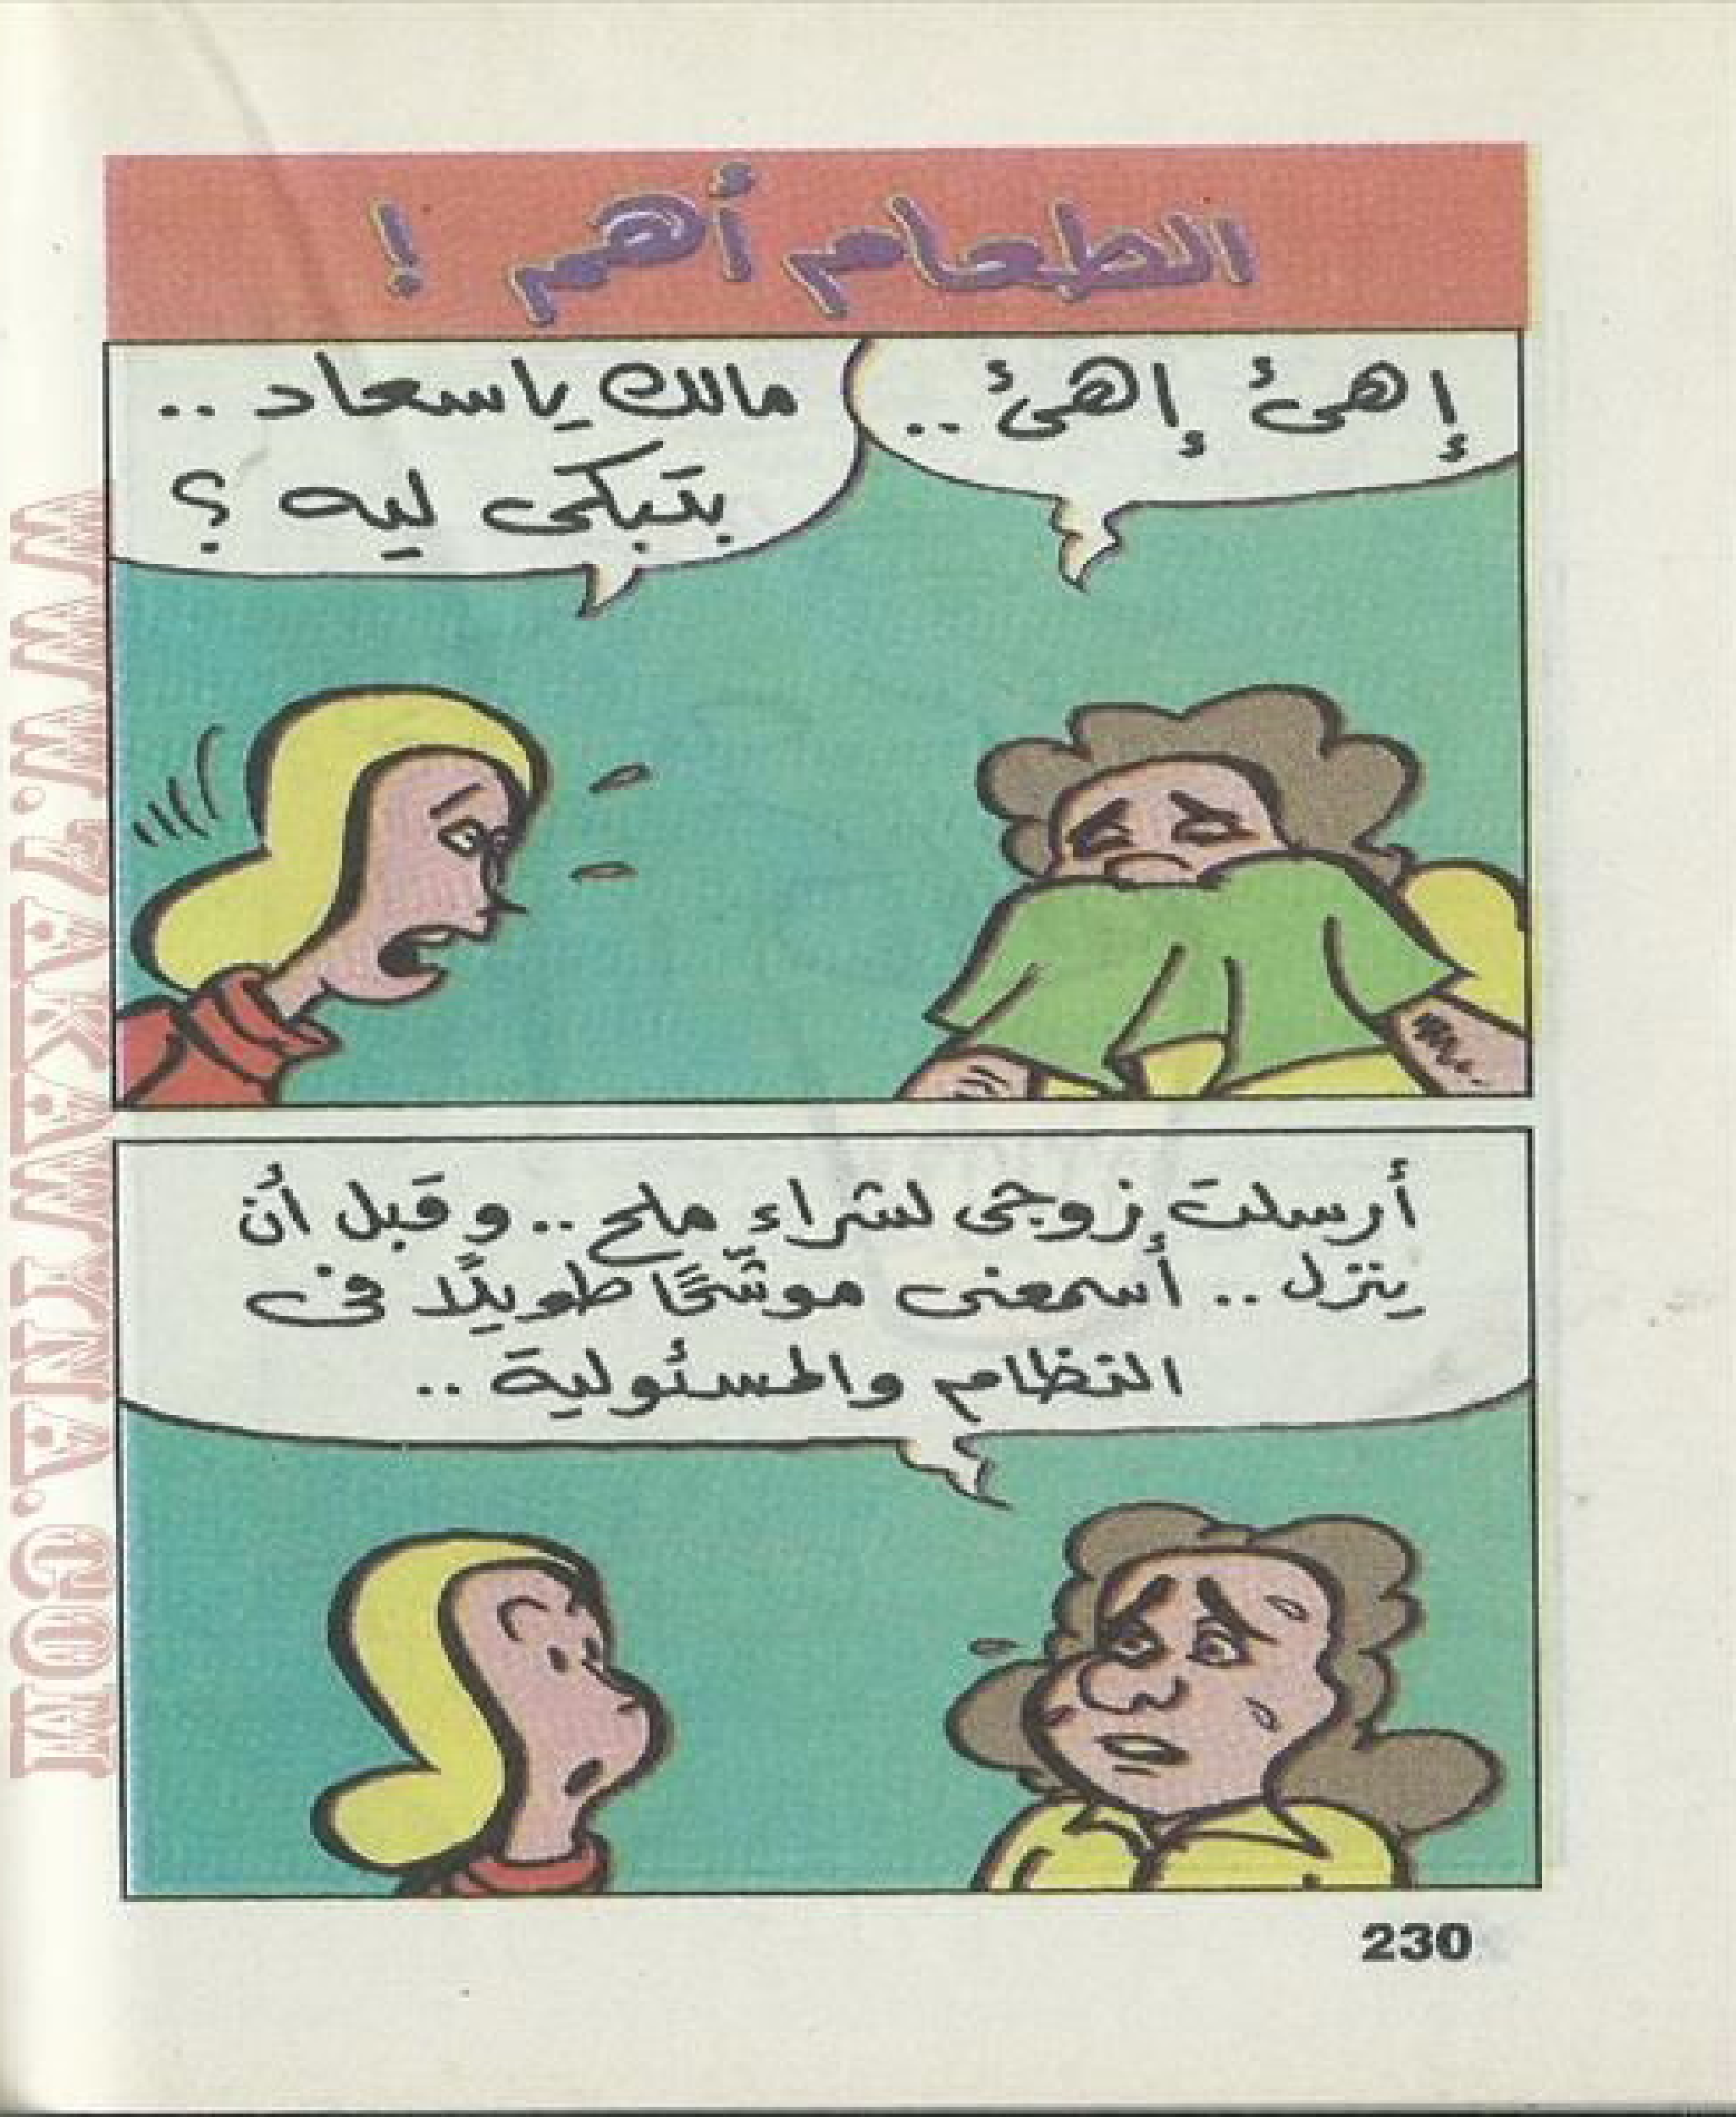 الطعام أهم !
إهئ إهئ ..
مالك ياسعاد ..
بتبكى ليه ؟
أرسلت زوجى لشراء ملح .. وقبل أن
ينزل .. أسمعنى موشَّحًا طويلًا فى
النظام والمسئولية ..
230
WWW.7AKAWITNA.COM